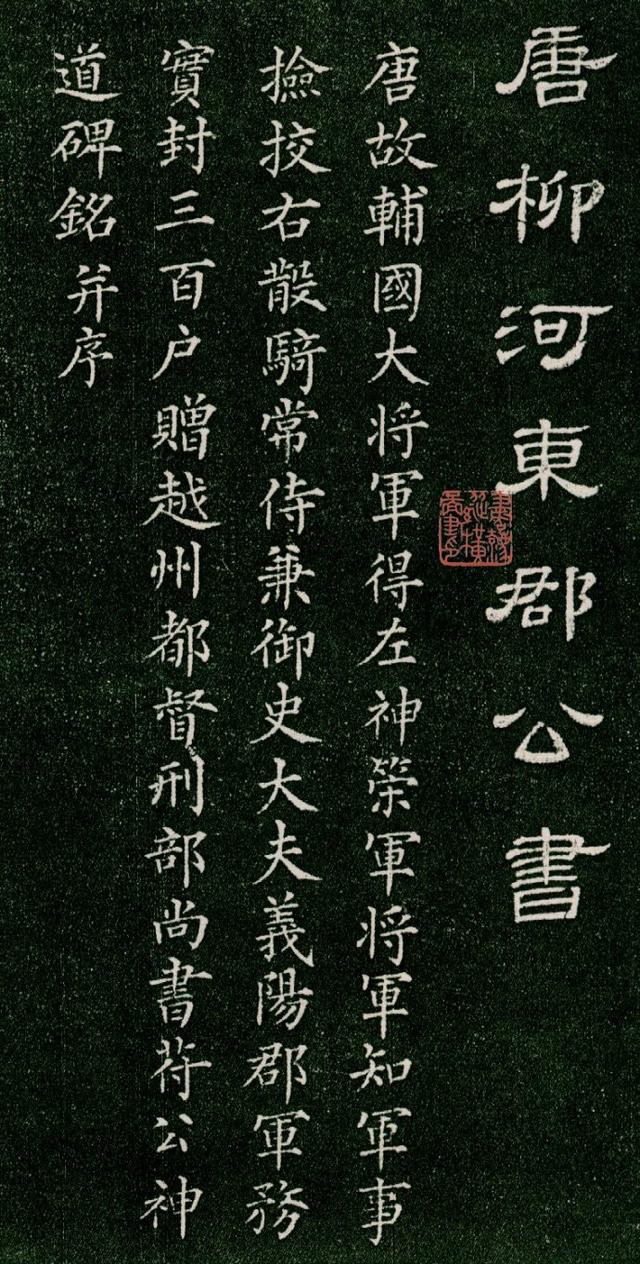 唐柳河東郡公書
唐故輔國大将軍得左神策軍将軍知軍事
撿挍右散騎常侍兼御史大夫義陽郡軍務
實封三百户贈越州都督刑部尚書苻公神
道碑銘并序